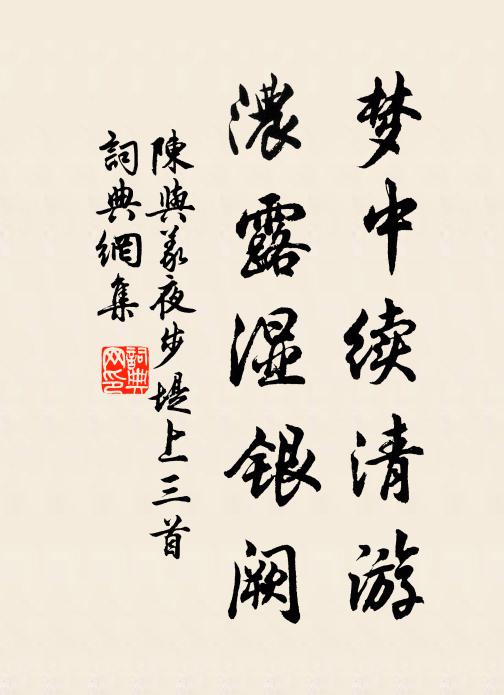 梦中续清游
濃露湿银阙
陳與義夜步堤上三首
詞典網集
詞典网印